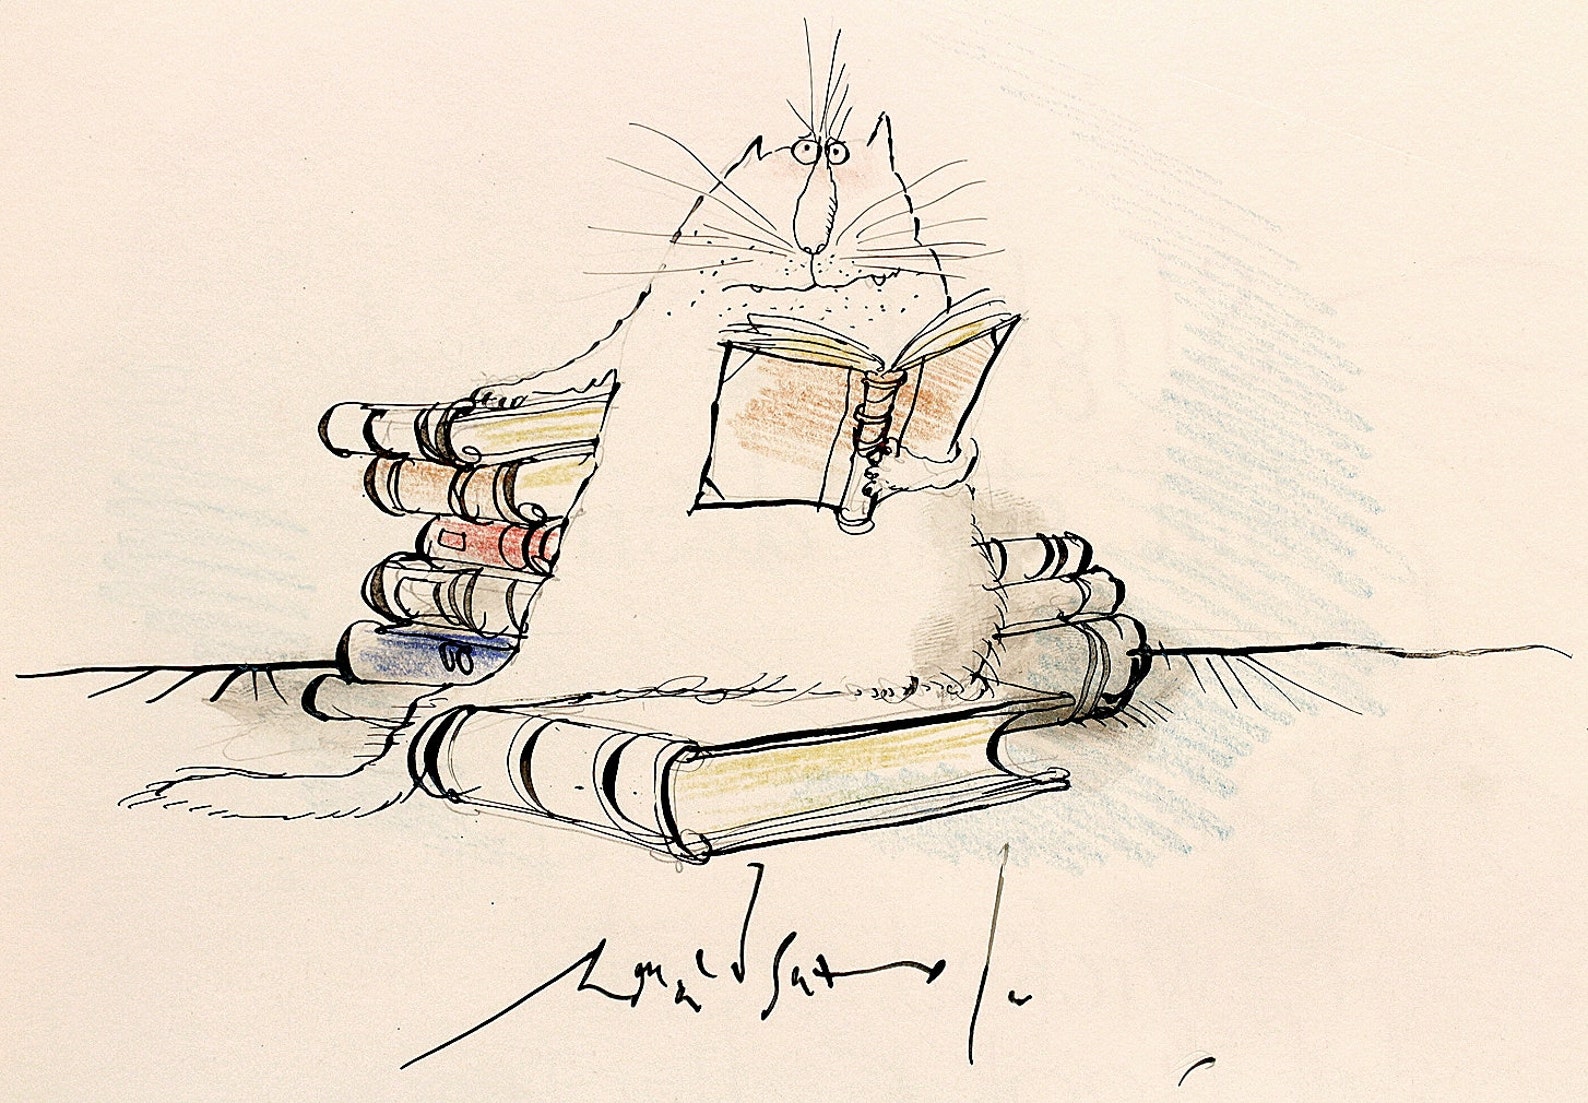 Ronald Searle